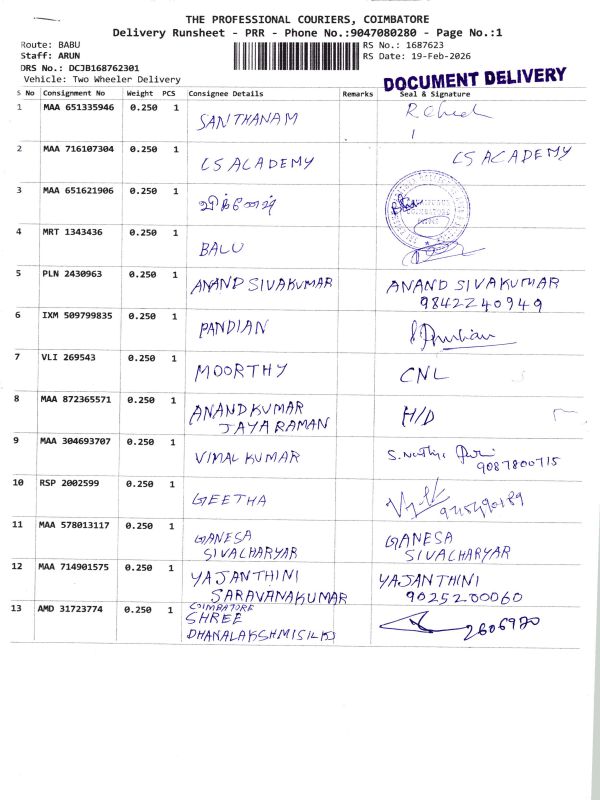 THE PROFESSIONAL COURIERS, COIMBATORE
Delivery Runsheet - PRR - Phone No.:9047080280 - Page No.:1
Route: BABU
RS No.: 1687623
Staff: ARUN
RS Date: 19-Feb-2026
DRS No.: DCJB168762301
Vehicle: Two Wheeler Delivery
DOCUMENT DELIVERY
S No Consignment No Weight PCS Consignee Details Remarks Seal & Signature
1 MAA 651335946 0.250 1 SANTHANAM
2 MAA 716107304 0.250 1 LS ACADEMY LS ACADEMY
3 MAA 651621906 0.250 1
4 MRT 1343436 0.250 1 BALU
5 PLN 2430963 0.250 1 ANAND SIVAKUMAR ANAND SIVAKUMAR
9842240949
6 IXM 509799835 0.250 1 PANDIAN
7 VLI 269543 0.250 1 MOORTHY CNL
8 MAA 872365571 0.250 1 ANANDKUMAR H/D
JAYARAMAN
9 MAA 304693707 0.250 1 VIMAL KUMAR
9087800715
10 RSP 2002599 0.250 1 GEETHA
11 MAA 578013117 0.250 1 GANESA GANESA
SIVALHARYAR SIVALHARYAR
12 MAA 714901575 0.250 1 YAJANTHINI YAJANTHINI
SARAVANAKUMAR 9025200060
13 AMD 31723774 0.250 1 COIMBATORE
SHREE
DHANALAKSHMISILKS 2606920